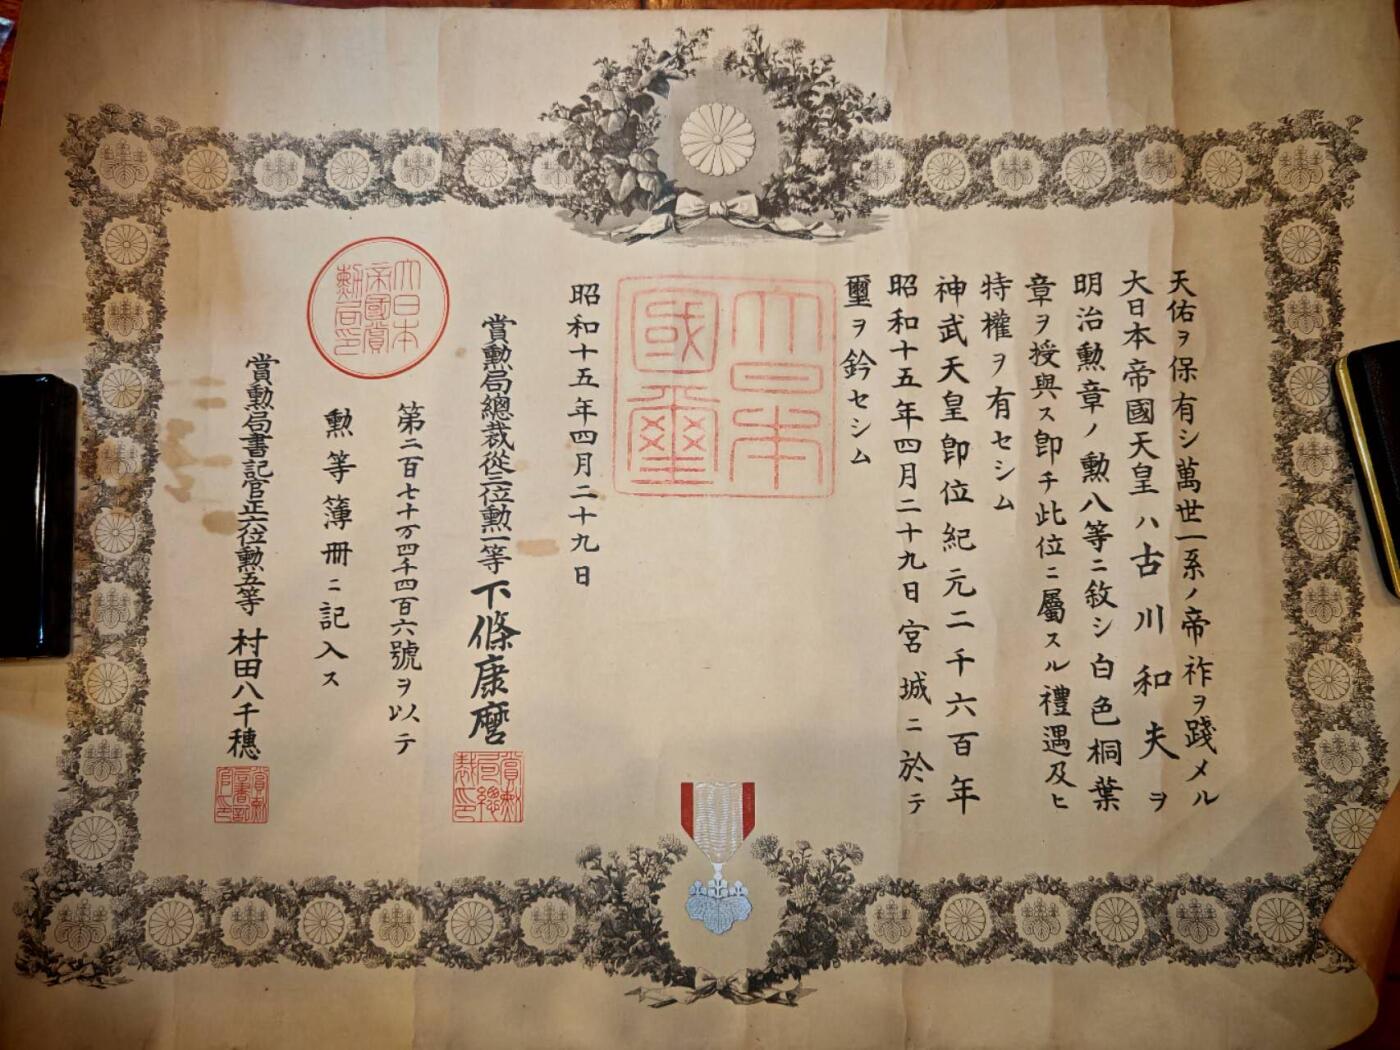 天佑ヲ保有シ萬世一系ノ帝祚ヲ踐メル
大日本帝國天皇ハ古川和夫ヲ
明治勲章ノ勲八等ニ敘シ白色桐葉
章ヲ授與ス卽チ此位ニ屬スル禮遇及ヒ
特權ヲ有セシム
神武天皇卽位紀元二千六百年
昭和十五年四月二十九日宮城ニ於テ
璽ヲ鈐セシム
大日本
國璽
昭和十五年四月二十九日
賞勲局總裁從三位勲一等下條康麿
賞勲局總裁印
第二百七十万四千四百六號ヲ以テ
勲等簿冊ニ記入ス
大日本帝國賞勲局印
賞勲局書記官正六位勲五等村田八千穗
賞勲局書記官印